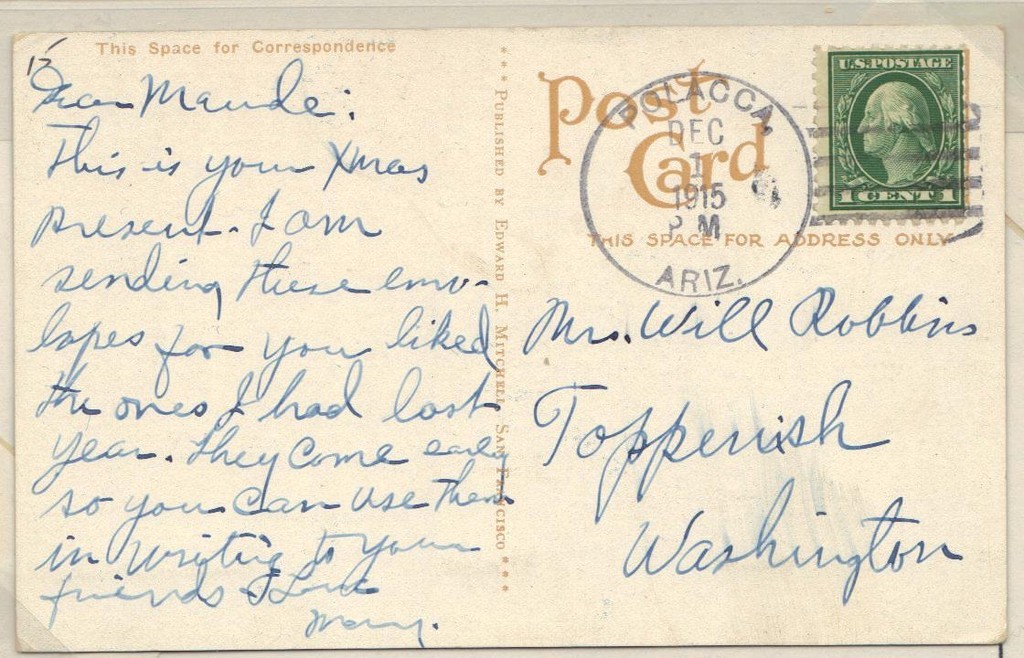 This Space for Correspondence
Dear Maude:
This is your Xmas
present. I am
sending these enve-
lopes for you liked
the ones I had last
year. They come early
so you can use them
in writing to your
friends. Love
Mary.
PUBLISHED BY EDWARD H. MITCHELL, SAN FRANCISCO
Post
Card
POLACCA,
DEC
1
1915
P M
ARIZ.
U.S. POSTAGE
1 CENT 1
THIS SPACE FOR ADDRESS ONLY
Mrs. Will Robbins
Toppenish
Washington